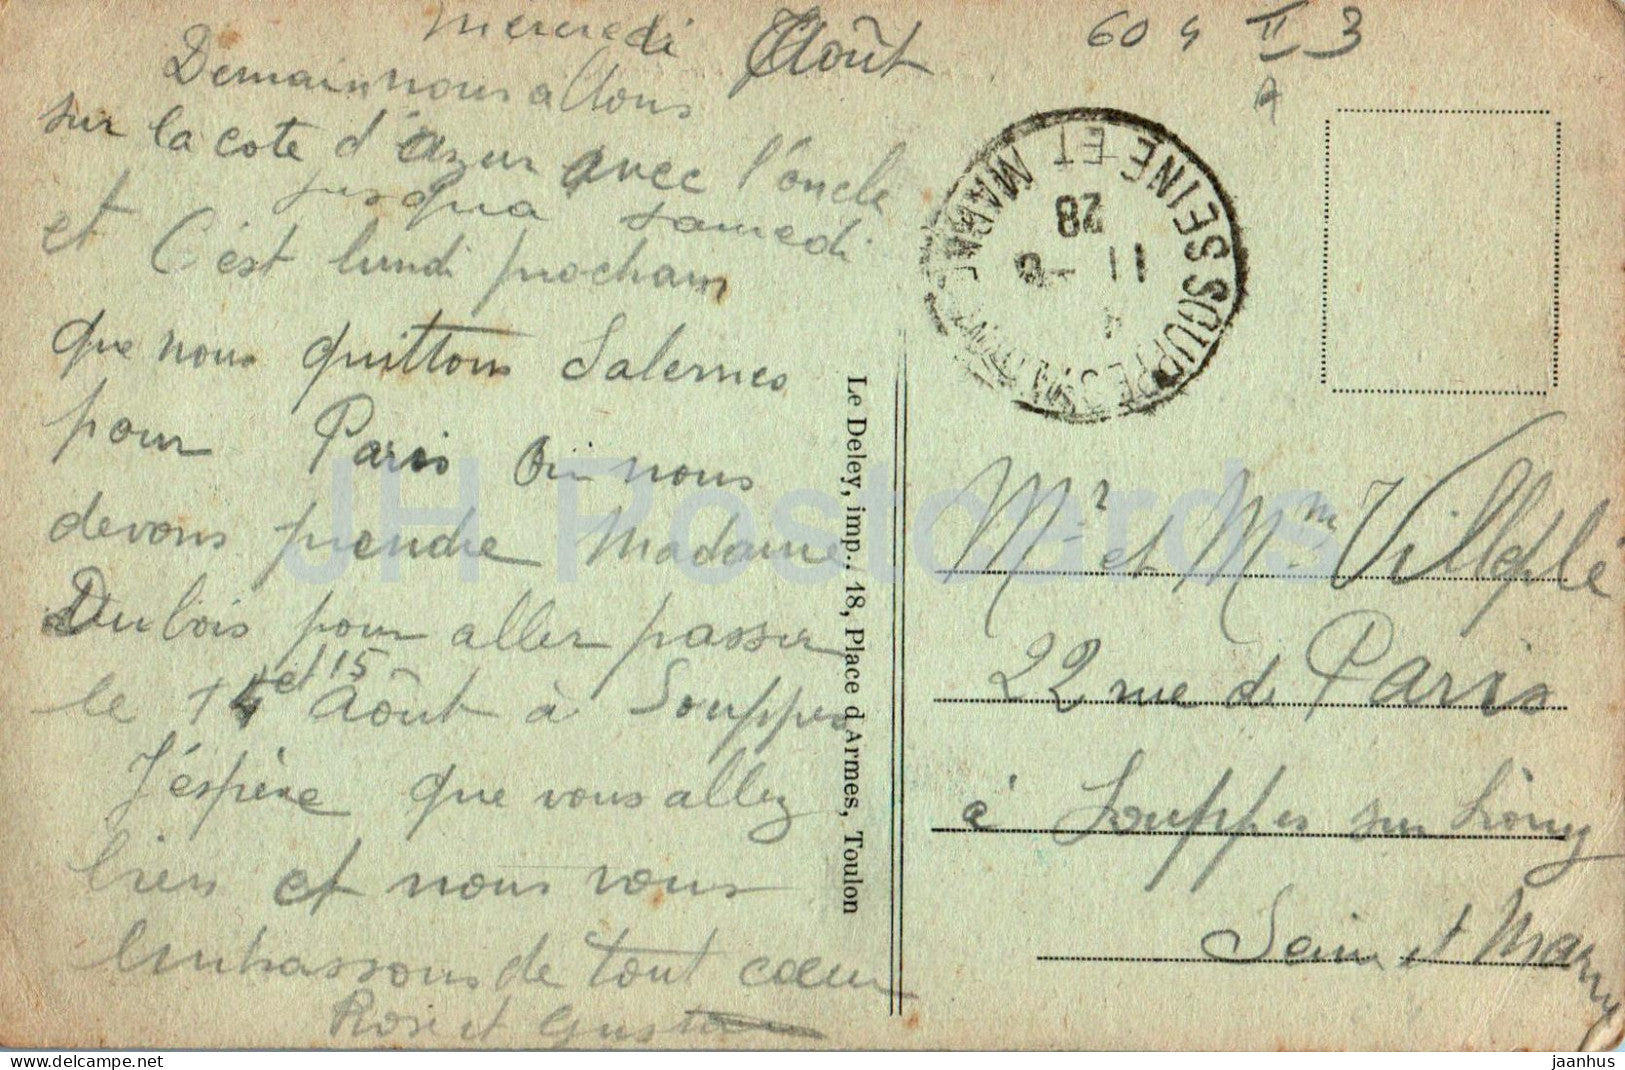 mercredi Août
Demain nous allons
sur la cote d'azur avec l'oncle
jusqua samedi
et C'est lundi prochain
que nous quittons Salernes
pour Paris Ou nous
devons prendre Madame
Dubois pour aller passer
le 14 et 15 Aôut à Souppes
J'éspère que vous allez
bien et nous vous
embrassons de tout coeur
Rose et Gustave
Le Deley, imp., 18, Place d'Armes, Toulon
604 II 3
SOUPPES SEINE ET MARNE
11 - 8
28
Mr et Mm Villeflé
22 rue de Paris
à Souppes sur Loing
Seine et Marne
JH Postcards
delcampe.net
jaanhus